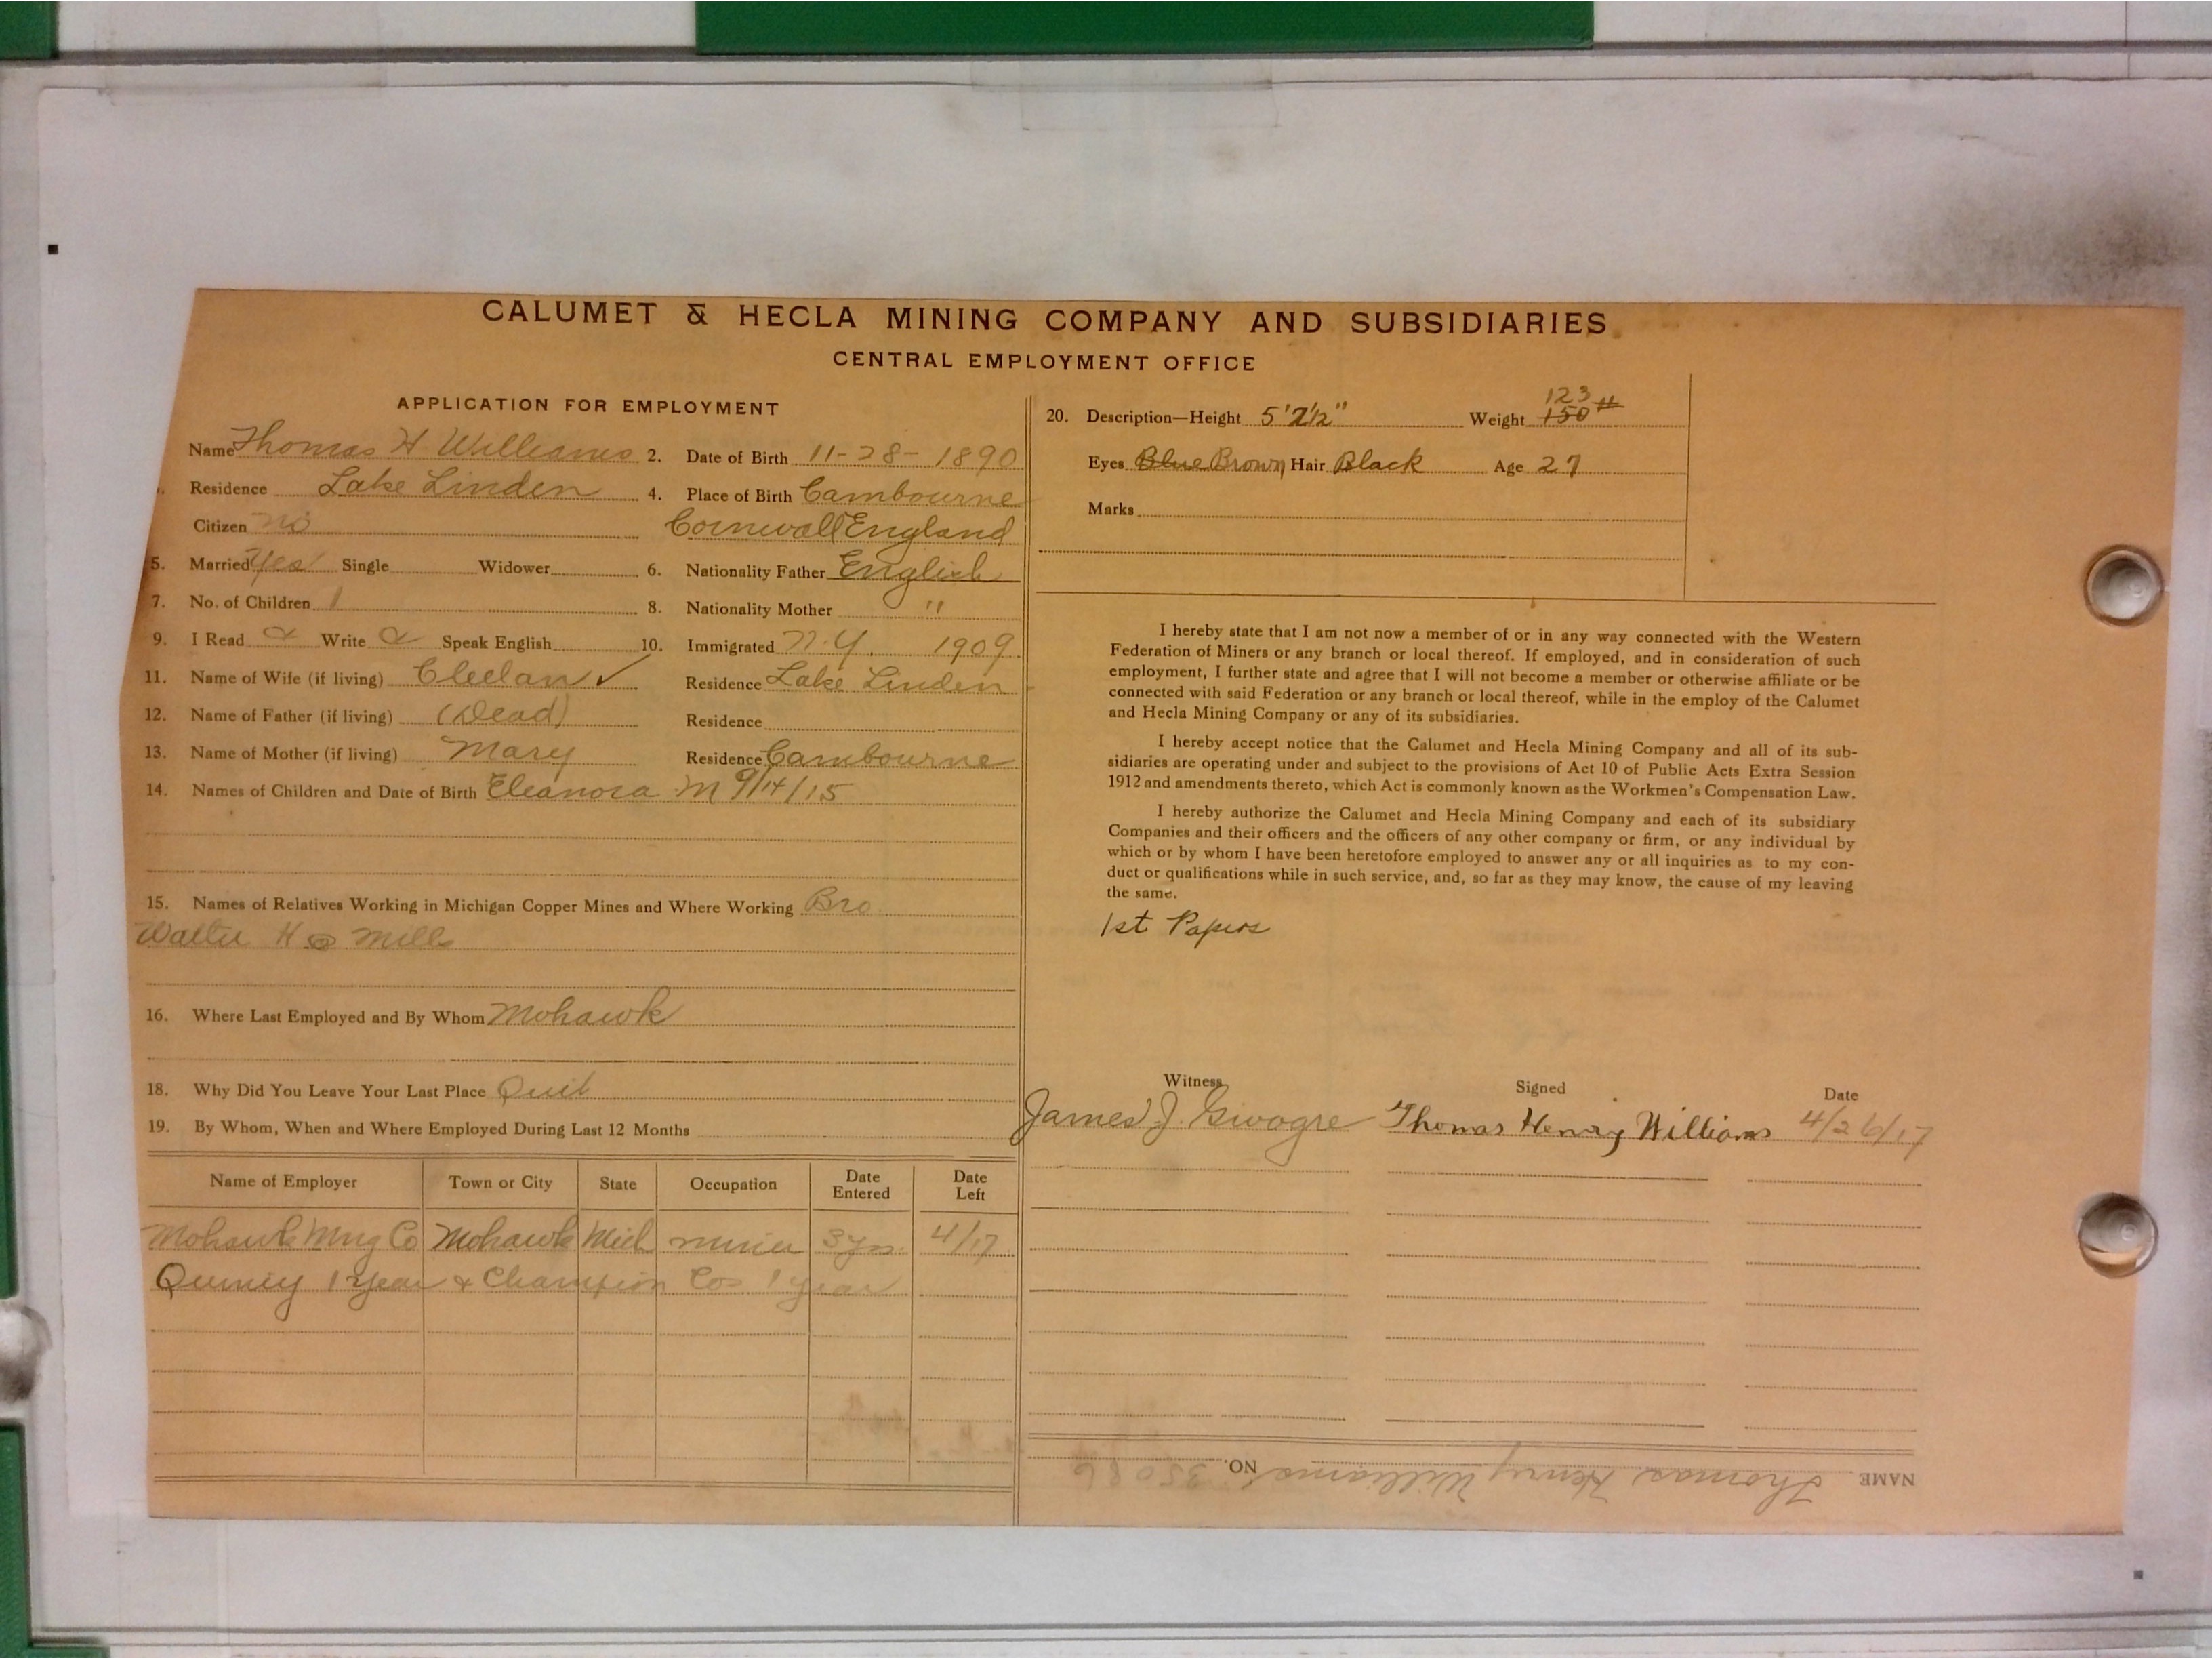 CALUMET & HECLA MINING COMPANY AND SUBSIDIARIES
CENTRAL EMPLOYMENT OFFICE
APPLICATION FOR EMPLOYMENT
Name Thomas H Williams 2. Date of Birth 11-28-1890
Residence Lake Linden 4. Place of Birth Cambourne
Citizen no Cornwall England
5. Married Yes Single Widower 6. Nationality Father English
7. No. of Children 1 8. Nationality Mother "
9. I Read & Write & Speak English 10. Immigrated N.Y. 1909
11. Name of Wife (if living) ✓ Residence Lake Linden
12. Name of Father (if living) (Dead) Residence
13. Name of Mother (if living) Mary Residence Cambourne
14. Names of Children and Date of Birth Eleanora M 9/14/15
15. Names of Relatives Working in Michigan Copper Mines and Where Working Bro
Walter H @ Mills
16. Where Last Employed and By Whom Mohawk
18. Why Did You Leave Your Last Place Quit
19. By Whom, When and Where Employed During Last 12 Months
Name of Employer Town or City State Occupation Date Entered Date Left
Mohawk Mng Co Mohawk Mich miner 3 yrs. 4/17
Quincy 1 year & Champion Co 1 year
20. Description—Height 5'7½" Weight 150 123 #
Eyes Blue Brown Hair Black Age 27
Marks
I hereby state that I am not now a member of or in any way connected with the Western
Federation of Miners or any branch or local thereof. If employed, and in consideration of such
employment, I further state and agree that I will not become a member or otherwise affiliate or be
connected with said Federation or any branch or local thereof, while in the employ of the Calumet
and Hecla Mining Company or any of its subsidiaries.
I hereby accept notice that the Calumet and Hecla Mining Company and all of its sub-
sidiaries are operating under and subject to the provisions of Act 10 of Public Acts Extra Session
1912 and amendments thereto, which Act is commonly known as the Workmen's Compensation Law.
I hereby authorize the Calumet and Hecla Mining Company and each of its subsidiary
Companies and their officers and the officers of any other company or firm, or any individual by
which or by whom I have been heretofore employed to answer any or all inquiries as to my con-
duct or qualifications while in such service, and, so far as they may know, the cause of my leaving
the same.
1st Papers
Witness Signed Date
James J. Thomas Henry Williams 4/26/17
NAME Thomas Henry Williams NO. 35086